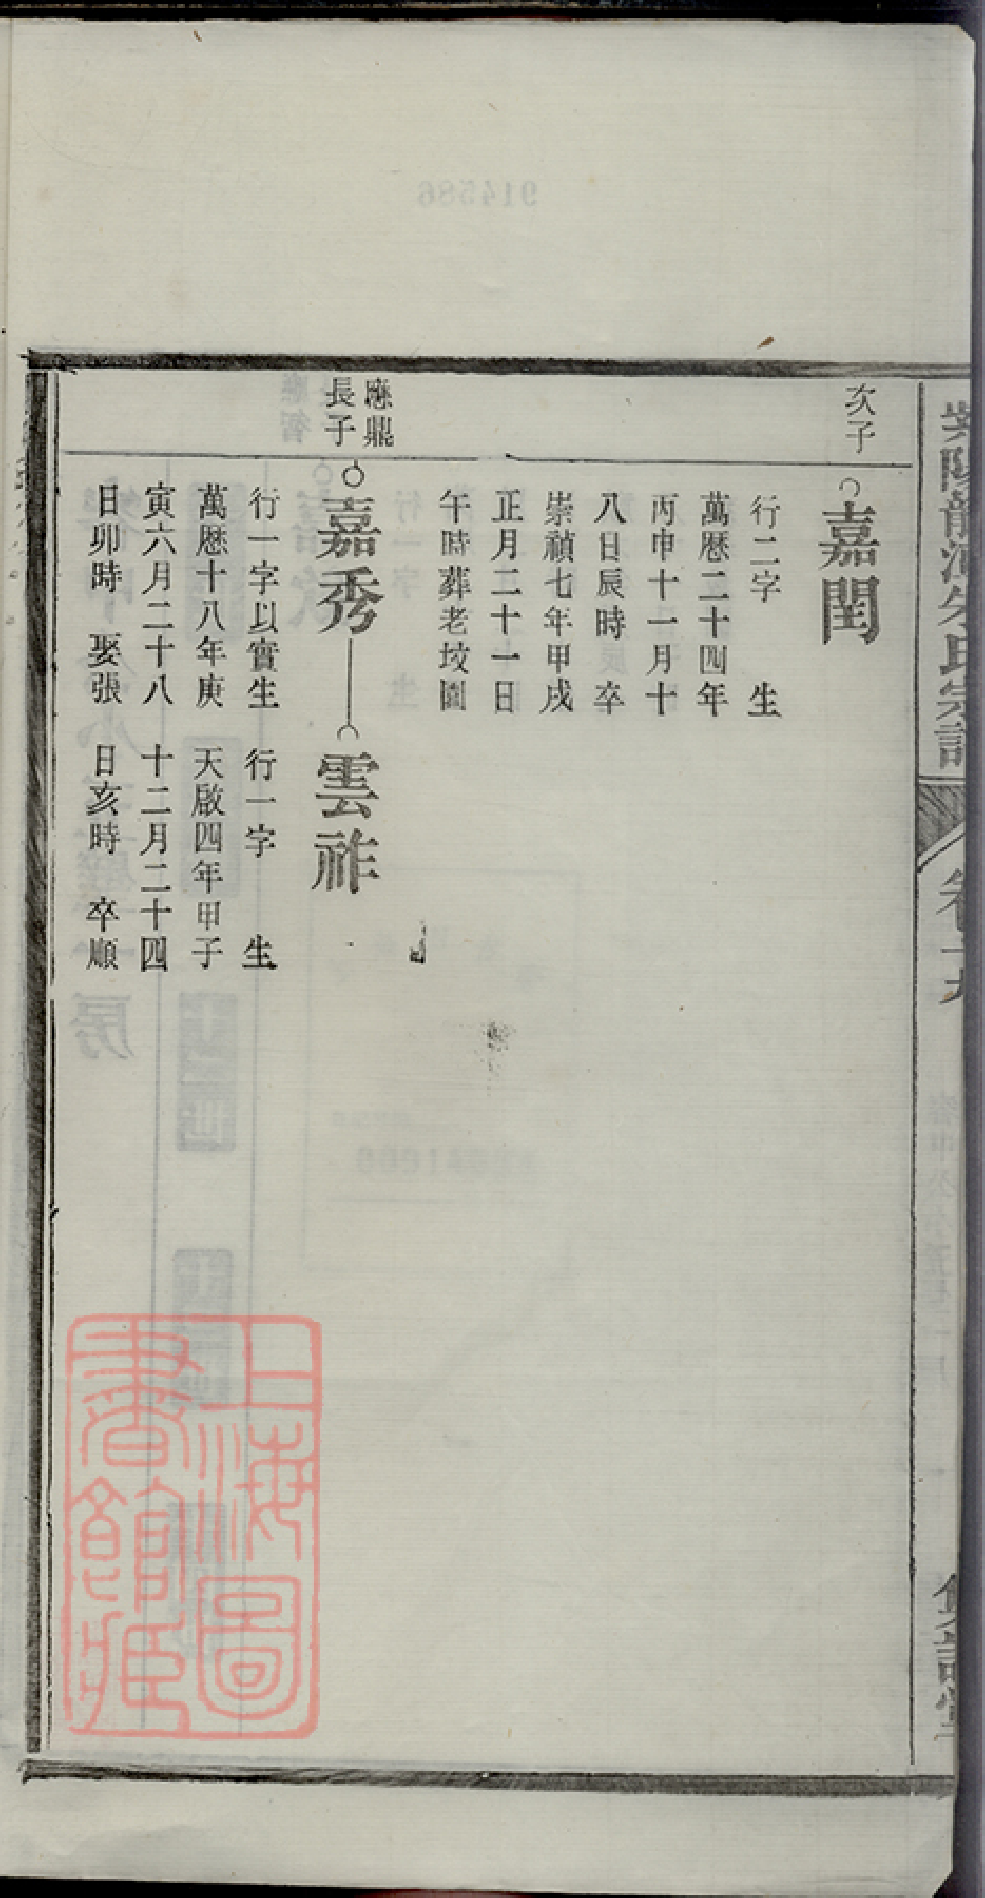 次子
嘉閏
行二字　生
萬厯二十四年
丙申十一月十
八日辰時　卒
崇禎七年甲戌
正月二十一日
午時葬老坟園
應鼎
長子
嘉秀
行一字以實生
萬厯十八年庚
寅六月二十八
日卯時　娶張
雲祚
行一字　生
天啟四年甲子
十二月二十四
日亥時　卒順
上海圖
書館藏